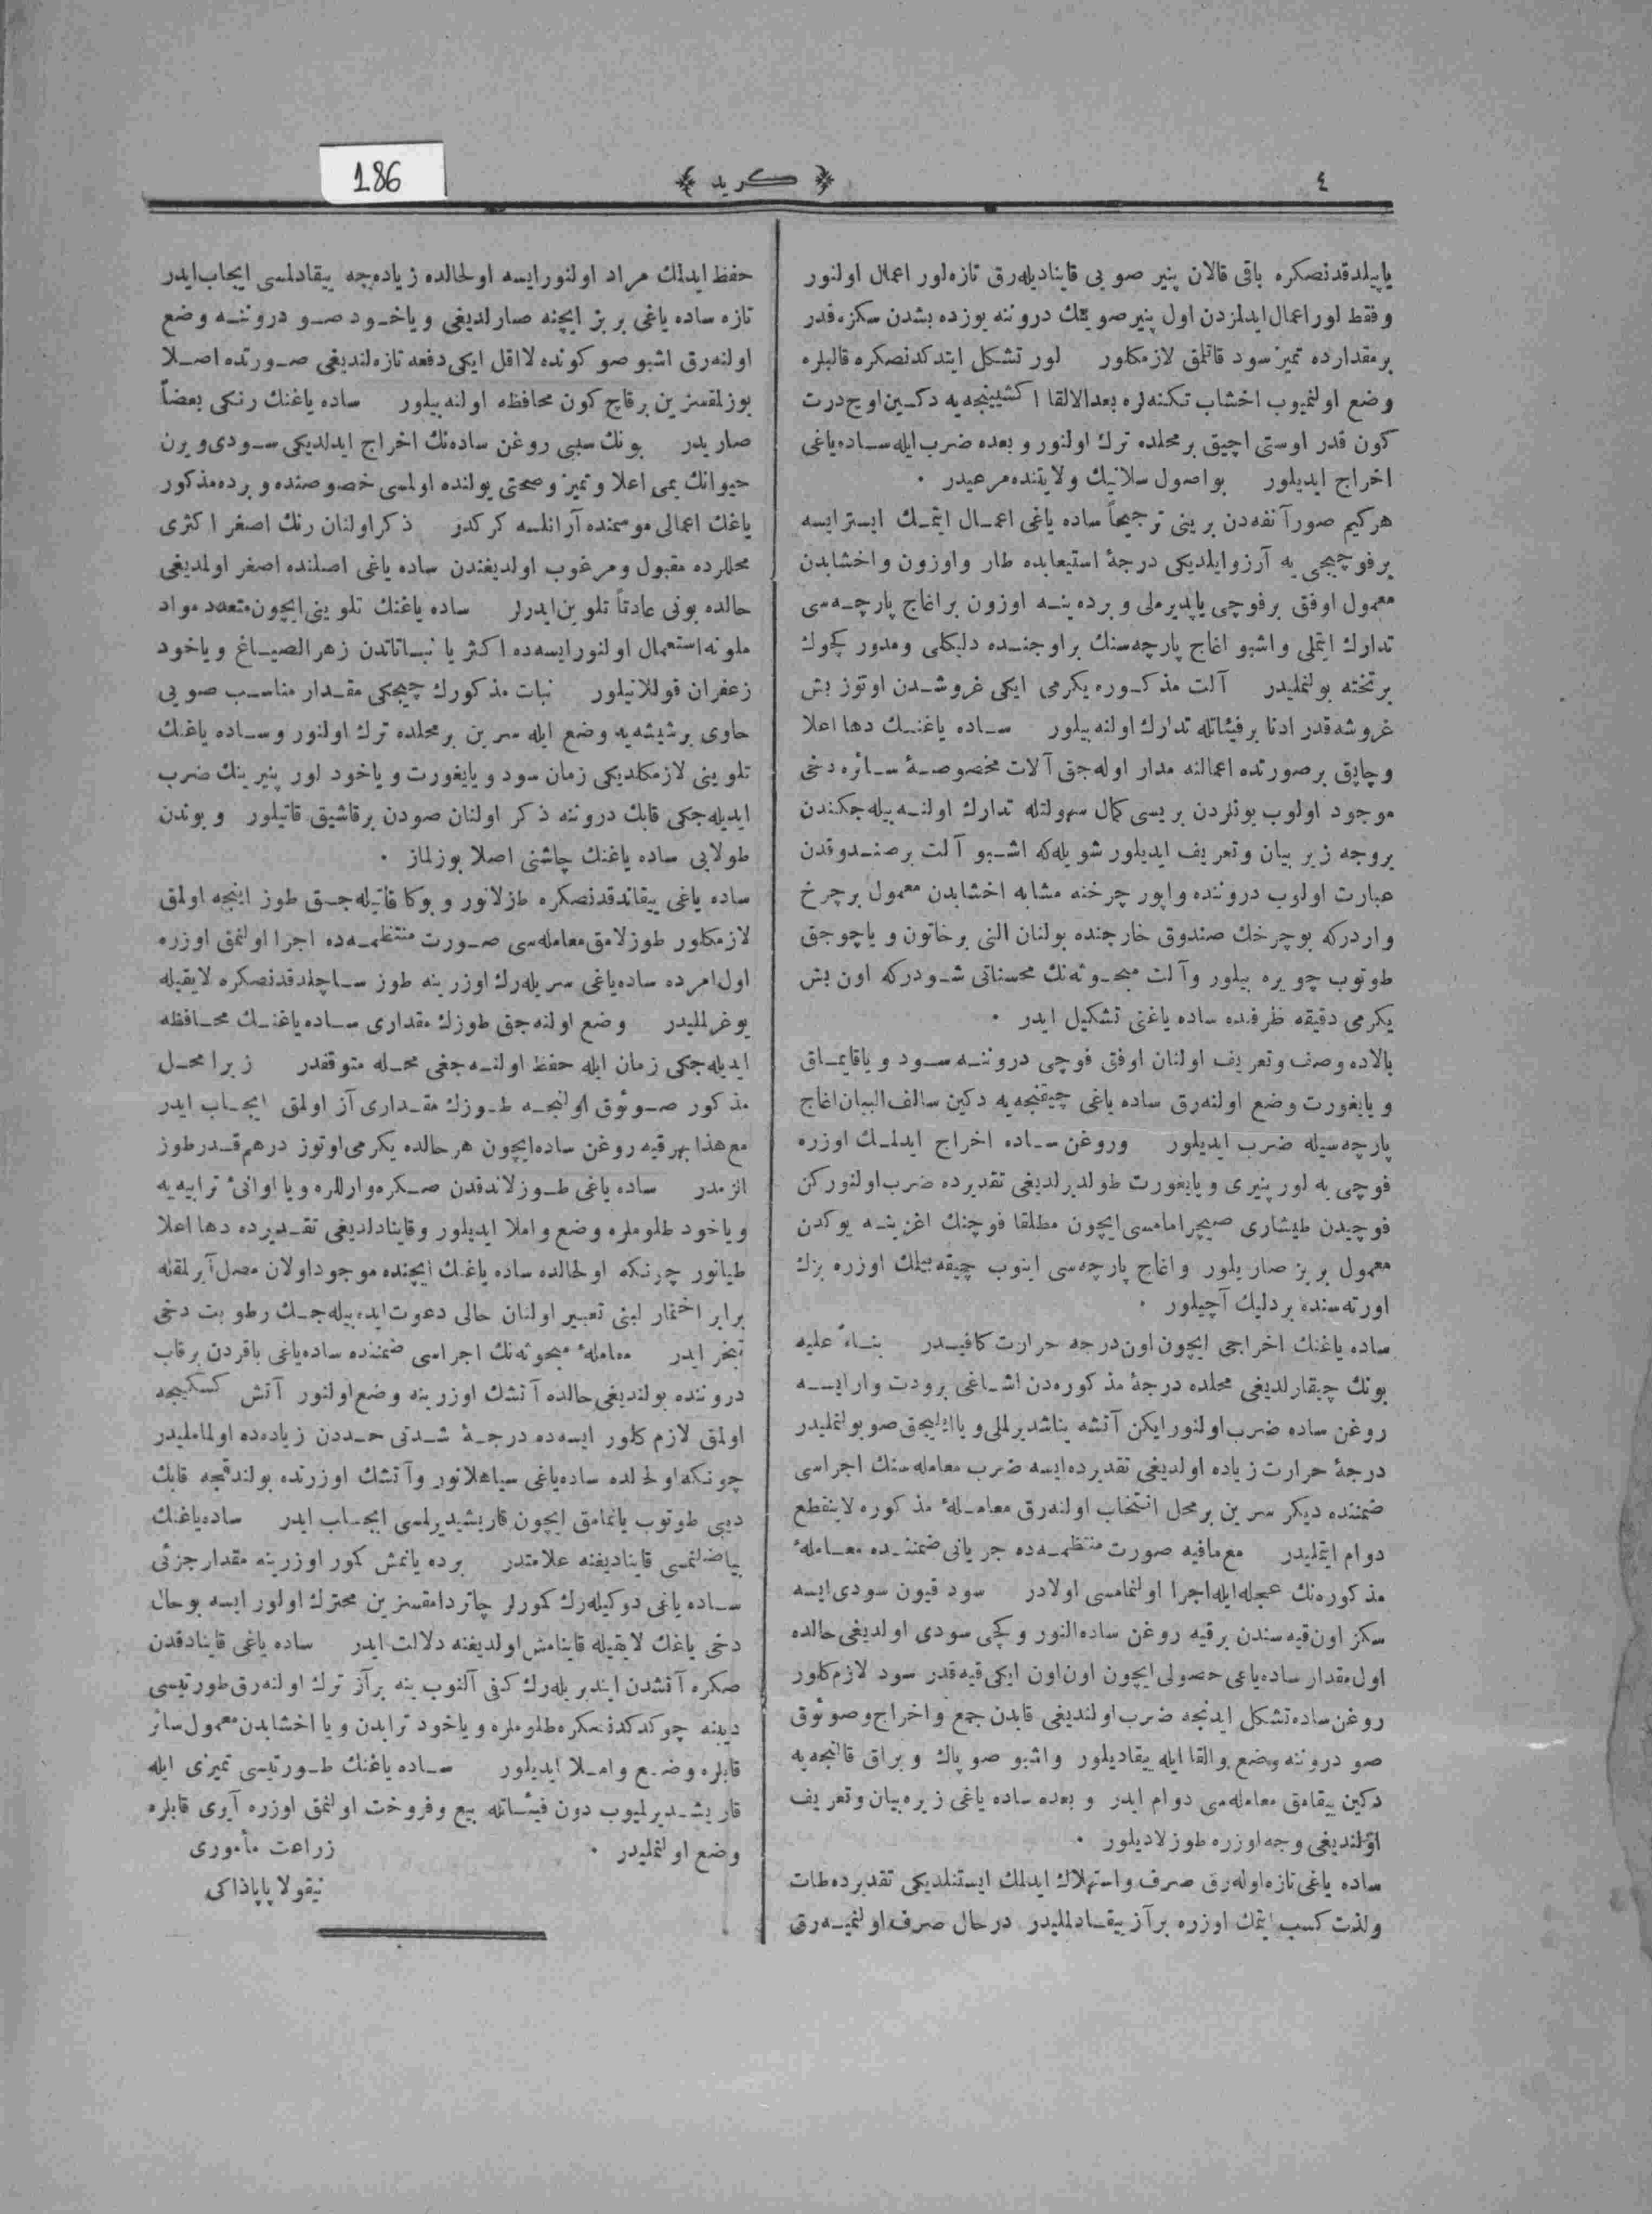 ٤
﴿ كريد ﴾
186
ياپيلدقدنصكره باقى قالان پنير صويى قاينادیله‌رق تازه‌لور اعمال اولنور
وفقط لور اعمال ايدلمزدن اول پنير صوينك دروننه يوزده بشدن سكزه‌قدر
برمقدارده تميز سود قاتلمق لازمكلور لور تشكل ايتدكدنصكره قالبلره
وضع اولنميوب اخشاب تكنه‌لره بعدالالقا اكشيينجه‌يه دكين اوچ درت
كون قدر اوستى اچيق برمحلده ترك اولنور و بعده ضرب ايله ساده‌ياغى
اخراج ايديلور بواصول سلانيك ولايتنده مرعيدر ٠
هركيم صور آنفه‌دن برينى ترجيحاً ساده ياغى اعمال ايتمك ايسترايسه
برفوچيجى يه آرزوايلديكى درجۀ استيعابده طار واوزون واخشابدن
معمول اوفق برفوچى ياپديرملى و برده ينه اوزون براغاج پارچه‌سى
تدارك ايتملى واشبو اغاج پارچه‌سنك براوجنده دليكلى ومدور كچوك
برتخته بولنمليدر آلت مذكوره يكرمى ايكى غروشدن اوتوز بش
غروشه‌قدر ادنا برفيئاتله تدارك اولنه‌بيلور ساده ياغنك دها اعلا
وچاپق برصورتده اعمالنه مدار اوله‌جق آلات مخصوصۀ سائره دخى
موجود اولوب بونلردن بريسى كمال سهولتله تدارك اولنه بيله‌جكندن
بروجه زير بيان وتعريف ايديلور شويله‌كه اشبو آلت برصندوقدن
عبارت اولوب دروننده واپور چرخنه مشابه اخشابدن معمول برچرخ
واردركه بوچرخك صندوق خارجنده بولنان النى برخاتون و ياچوجق
طوتوب چويره بيلور وآلت مبحوثه‌نك محسناتى شودركه اون بش
يكرمى دقيقه ظرفنده ساده ياغنى تشكيل ايدر ٠
بالاده وصف وتعريف اولنان اوفق فوچى دروننه سود و ياقايماق
و يايغورت وضع اولنه‌رق ساده ياغى چيقنجه‌يه دكين سالف‌البيان اغاج
پارچه‌سيله ضرب ايديلور وروغن ساده اخراج ايدلمك اوزره
فوچى يه لور پنيرى و يايغورت طولديرلديغى تقديرده ضرب اولنوركن
فوچيدن طيشارى صيچرامامسى ايچون مطلقا فوچنك اغزينه يوكدن
معمول بر بز صاريلور واغاج پارچه‌سى اينوب چيقه‌بيلك اوزره بزك
اورته‌سنده بردليك آچيلور ٠
ساده ياغنك اخراجى ايچون اون درجه حرارت كافيدر بناءً عليه
بونك چيقارلديغى محلده درجۀ مذكوره‌دن اشاغى برودت وارايسه
روغن ساده ضرب اولنورايكن آتشه يناشديرلملى و ياايليجق صو بولنمليدر
درجۀ حرارت زياده اولديغى تقديرده‌ايسه ضرب معامله‌سنك اجراسى
ضمننده ديكر سرين برمحل انتخاب اولنه‌رق معاملۀ مذكوره لاينقطع
دوام ايتمليدر مع‌مافيه صورت منتظمه‌ده جريانى ضمننده معاملۀ
مذكوره‌نك عجله‌ايله اجرا اولنمامسى اولادر سود قيون سودى ايسه
سكز اون قيه‌سندن برقيه روغن ساده النور وكچى سودى اولديغى حالده
اول مقدار ساده ياغى حصولى ايچون اون اون ايكى قيه‌قدر سود لازمكلور
روغن ساده تشكل ايدنجه ضرب اولنديغى قابدن جمع واخراج و صوئوق
صو دروننه وضع و القا ايله ييقاديلور واشبو صو پاك و براق قالنجه‌يه
دكين ييقامق معامله‌سى دوام ايدر و بعده ساده ياغى زيره بيان وتعريف
اولنديغى وجه اوزره طوزلاديلور ٠
ساده ياغى تازه‌اوله‌رق صرف واستهلاك ايدلمك ايستنلديكى تقديرده طات
ولذت كسب ايتمك اوزره برآز ييقادلمليدر درحال صرف اولنميه‌رق
حفظ ايدلمك مراد اولنورايسه اولحالده زياده‌جه ييقادلمسى ايجاب ايدر
تازه ساده ياغى بر بز ايچنه صارلديغى وياخود صو دروننه وضع
اولنه‌رق اشبو صو كونده لااقل ايكى دفعه تازه‌لنديغى صورتده اصلا
بوزلمقسزين برقاچ كون محافظه اولنه‌بيلور ساده ياغنك رنكى بعضاً
صاريدر بونك سببى روغن ساده‌نك اخراج ايدلديكى سودى ويرن
حيوانك يمى اعلا وتميز وصحتى يولنده اولمسى خصوصنده و برده مذكور
ياغك اعمالى موسمنده آرانلسه كركدر ذكراولنان رنك اصفر اكثرى
محللرده مقبول ومرغوب اولديغندن ساده ياغى اصلنده اصفر اولمديغى
حالده بونى عادتاً تلوين ايدرلر ساده ياغنك تلوينى ايچون متعدد مواد
ملونه استعمال اولنورايسه‌ده اكثريا نباتاتدن زهرالصباغ وياخود
زعفران قوللانيلور نبات مذكورك چيچكى مقدار مناسب صويى
حاوى برشيشه‌يه وضع ايله سرين برمحلده ترك اولنور وساده ياغنك
تلوينى لازمكلديكى زمان سود و يايغورت وياخود لور پنيرينك ضرب
ايديله‌جكى قابك دروننه ذكر اولنان صودن برقاشيق قاتيلور وبوندن
طولايى ساده ياغنك چاشنى اصلا بوزلماز ٠
ساده ياغى ييقاندقدنصكره طزلانور و بوكا قاتيله‌جق طوز اينجه اولمق
لازمكلور طوزلامق معامله‌سى صورت منتظمه‌ده اجرا اولنمق اوزره
اول‌امرده ساده‌ياغى سريله‌رك اوزرينه طوز ساچلدقدنصكره لايقيله
يوغرلمليدر وضع اولنه‌جق طوزك مقدارى ساده ياغنك محافظه
ايديله‌جكى زمان ايله حفظ اولنه‌جغى محله متوقفدر زيرا محل
مذكور صوئوق اولنجه طوزك مقدارى آز اولمق ايجاب ايدر
مع‌هذا بهر قيه روغن ساده‌ايچون هرحالده يكرمى اوتوز درهم قدرطوز
الزمدر ساده ياغى طوزلاندقدن صكره وارللره و يا اوانئ ترابيه‌يه
وياخود طلوملره وضع واملا ايديلور وقاينادلديغى تقديرده دها اعلا
طيانور چرنكه اولحالده ساده ياغنك ايچنده موجود اولان مصل آيرلمقله
برابر اختمار لبنى تعبير اولنان حالى دعوت ايده‌بيله‌جك رطوبت دخى
تبخر ايدر معاملۀ مبحوثه‌نك اجراسى ضمننده ساده‌ياغى باقردن برقاب
دروننده بولنديغى حالده آتشك اوزرينه وضع اولنور آتش كسكينجه
اولمق لازم كلور ايسه‌ده درجۀ شدتى حددن زياده‌ده اولمامليدر
چونكه اولحالده ساده‌ياغى سياهلانور وآتشك اوزرنده بولندقجه قابك
ديبى طوتوب يانمامق ايچون قاريشديرلمسى ايجاب ايدر ساده‌ياغنك
بياضلنمسى قاينادیغنه علامتدر برده يانمش كمور اوزرينه مقدار جزئى
ساده ياغى دوكيله‌رك كمورلر چاتردامقسزين محترك اولور ايسه بوحال
دخى ياغك لايقيله قاينامش اولديغنه دلالت ايدر ساده ياغى قاينادقدن
صكره آتشدن اينديريله‌رك كفى آلنوب ينه برآز ترك اولنه‌رق طورتيسى
ديبنه چوكدكدنصكره طلوملره وياخود ترابدن ويا اخشابدن معمول سائر
قابلره وضع واملا ايديلور ساده ياغنك طورتيسى تميزى ايله
قاريشديرلميوب دون فيئاتله بيع وفروخت اولنمق اوزره آيرى قابلره
وضع اولنمليدر ٠
زراعت مأمورى
نيقولا پاپاداكى